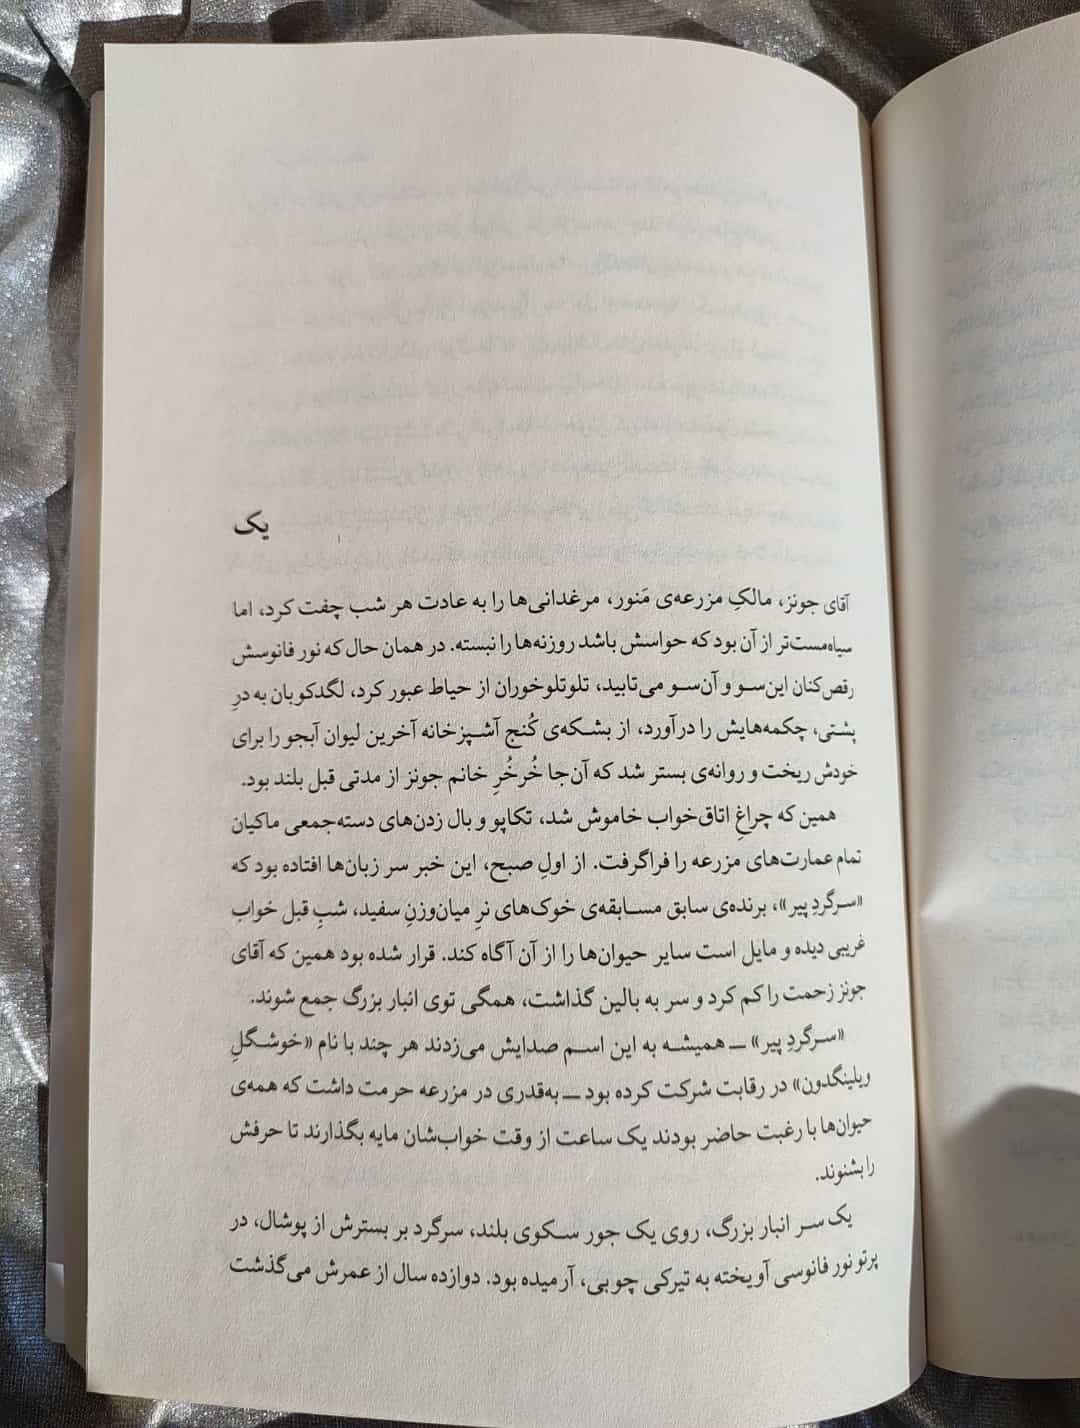 یک
آقای جونز، مالکِ مزرعه‌ی مَنور، مرغدانی‌ها را به عادت هر شب چفت کرد، اما
سیاه‌مست‌تر از آن بود که حواسش باشد روزنه‌ها را نبسته. در همان حال که نور فانوسش
رقص‌کنان این‌سو و آن‌سو می‌تابید، تلوتلوخوران از حیاط عبور کرد، لگدکوبان به درِ
پشتی، چکمه‌هایش را درآورد، از بشکه‌ی کُنج آشپزخانه آخرین لیوان آبجو را برای
خودش ریخت و روانه‌ی بستر شد که آن‌جا خُرخُرِ خانم جونز از مدتی قبل بلند بود.
همین که چراغِ اتاق‌خواب خاموش شد، تکاپو و بال زدن‌های دسته‌جمعی ماکیان
تمام عمارت‌های مزرعه را فراگرفت. از اولِ صبح، این خبر سر زبان‌ها افتاده بود که
«سرگردِ پیر»، برنده‌ی سابق مسابقه‌ی خوک‌های نرِ میان‌وزنِ سفید، شبِ قبل خواب
غریبی دیده و مایل است سایر حیوان‌ها را از آن آگاه کند. قرار شده بود همین که آقای
جونز زحمت را کم کرد و سر به بالین گذاشت، همگی توی انبار بزرگ جمع شوند.
«سرگردِ پیر» — همیشه به این اسم صدایش می‌زدند هر چند با نام «خوشگلِ
ویلینگدون» در رقابت شرکت کرده بود — به‌قدری در مزرعه حرمت داشت که همه‌ی
حیوان‌ها با رغبت حاضر بودند یک ساعت از وقت خواب‌شان مایه بگذارند تا حرفش
را بشنوند.
یک سر انبار بزرگ، روی یک جور سکوی بلند، سرگرد بر بسترش از پوشال، در
پرتو نور فانوسی آویخته به تیرکی چوبی، آرمیده بود. دوازده سال از عمرش می‌گذشت